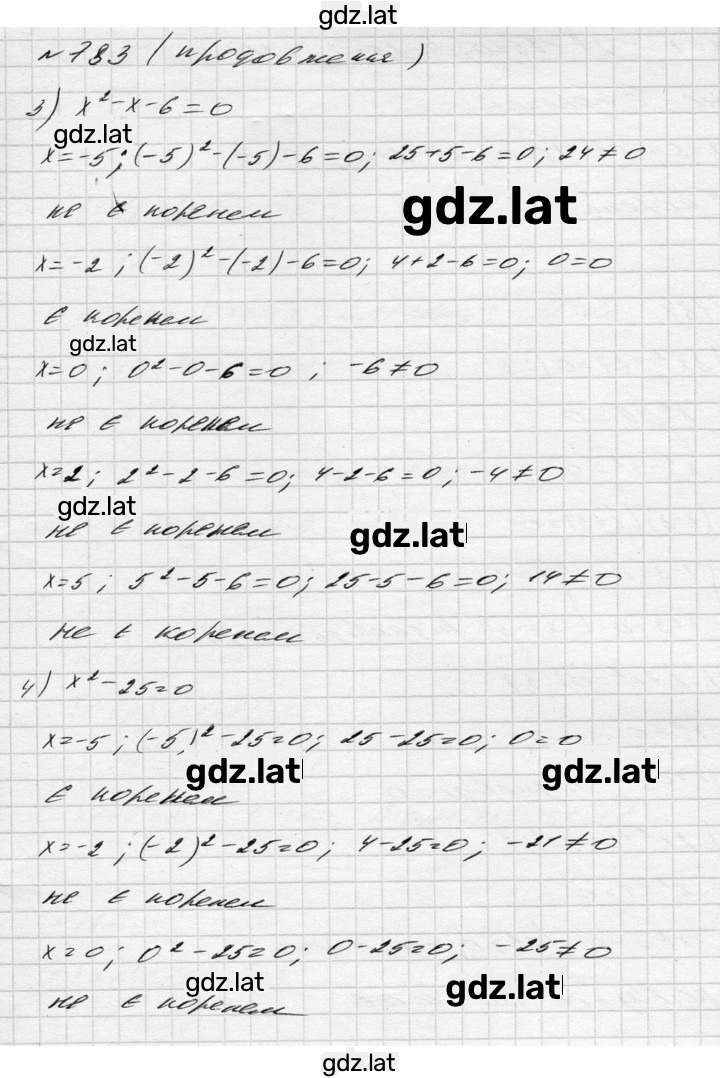 gdz.lat
№ 783 (продовження)
3) x² - x - 6 = 0
gdz.lat
x = -5; (-5)² - (-5) - 6 = 0; 25 + 5 - 6 = 0; 24 ≠ 0
не є коренем
gdz.lat
x = -2; (-2)² - (-2) - 6 = 0; 4 + 2 - 6 = 0; 0 = 0
є коренем
gdz.lat
x = 0; 0² - 0 - 6 = 0; -6 ≠ 0
не є коренем
x = 2; 2² - 2 - 6 = 0; 4 - 2 - 6 = 0; -4 ≠ 0
gdz.lat
не є коренем
gdz.lat
x = 5; 5² - 5 - 6 = 0; 25 - 5 - 6 = 0; 14 ≠ 0
не є коренем
4) x² - 25 = 0
x = -5; (-5)² - 25 = 0; 25 - 25 = 0; 0 = 0
gdz.lat gdz.lat
є коренем
x = -2; (-2)² - 25 = 0; 4 - 25 = 0; -21 ≠ 0
не є коренем
x = 0; 0² - 25 = 0; 0 - 25 = 0; -25 ≠ 0
gdz.lat gdz.lat
не є коренем
gdz.lat